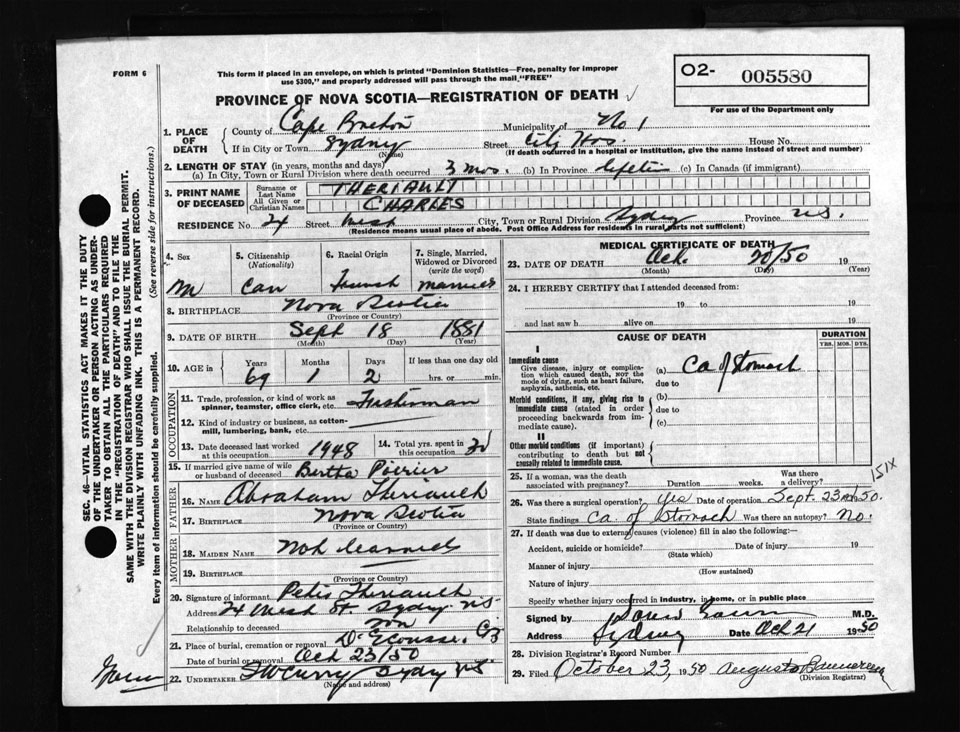 FORM 6
This form if placed in an envelope, on which is printed "Dominion Statistics—Free, penalty for improper
use $300," and properly addressed will pass through the mail "FREE"
PROVINCE OF NOVA SCOTIA—REGISTRATION OF DEATH
O2- 005580
For use of the Department only
1. PLACE OF DEATH
County of Cape Breton Municipality of No 1
If in City or Town Sydney Street City Hos House No.
(Name) (If death occurred in a hospital or institution, give the name instead of street and number)
2. LENGTH OF STAY (in years, months and days)
(a) In City, Town or Rural Division where death occurred 3 mos. (b) In Province (c) In Canada (if immigrant)
3. PRINT NAME OF DECEASED
Surname or Last Name THERIAULT
All Given or Christian Names CHARLES
RESIDENCE No. 24 Street West City, Town or Rural Division Sydney Province N.S.
(Residence means usual place of abode. Post Office Address for residents in rural parts not sufficient)
4. Sex 5. Citizenship (Nationality) 6. Racial Origin 7. Single, Married, Widowed or Divorced (write the word)
M Can French Married
8. BIRTHPLACE Nova Scotia
(Province or Country)
9. DATE OF BIRTH Sept 18 1881
(Month) (Day) (Year)
10. AGE in Years Months Days If less than one day old
69 1 2 hrs. or min.
OCCUPATION
11. Trade, profession, or kind of work as spinner, teamster, office clerk, etc. Fisherman
12. Kind of industry or business, as cotton-mill, lumbering, bank, etc.
13. Date deceased last worked at this occupation 1948 14. Total yrs. spent in
15. If married give name of wife or husband of deceased Bertha Poirier
FATHER
16. NAME Abraham Theriault
17. BIRTHPLACE Nova Scotia
(Province or Country)
MOTHER
18. MAIDEN NAME Not learned
19. BIRTHPLACE
(Province or Country)
20. Signature of informant Theriault
Address 24 West St. Sydney NS
Relationship to deceased son
21. Place of burial, cremation or removal D'Escousse, CB
Date of burial or removal Oct 23/50
22. UNDERTAKER Curry Sydney N.S.
(Name and address)
MEDICAL CERTIFICATE OF DEATH
23. DATE OF DEATH Oct. 20/50 19
(Month) (Day) (Year)
24. I HEREBY CERTIFY that I attended deceased from:
19 to 19
and last saw h alive on 19
CAUSE OF DEATH DURATION
YRS. MOS. DYS.
I
Immediate cause
Give disease, injury or complication which caused death, not the mode of dying, such as heart failure, asphyxia, asthenia, etc.
(a) Ca of Stomach
due to
Morbid conditions, if any, giving rise to immediate cause (stated in order proceeding backwards from immediate cause).
(b)
due to
(c)
II
Other morbid conditions (if important) contributing to death but not causally related to immediate cause.
25. If a woman, was the death associated with pregnancy? Duration weeks. Was there a delivery?
151X
26. Was there a surgical operation? Yes Date of operation Sept. 23rd 50.
State findings Ca. of Stomach Was there an autopsy? No.
27. If death was due to external causes (violence) fill in also the following:—
Accident, suicide or homicide? Date of injury 19
(State which)
Manner of injury
(How sustained)
Nature of injury
Specify whether injury occurred in industry, in home, or in public place
Signed by M.D.
Address Sydney Date Oct 21 1950
28. Division Registrar's Record Number
29. Filed October 23, 1950
(Division Registrar)
SEC. 46—VITAL STATISTICS ACT MAKES IT THE DUTY
OF THE UNDERTAKER OR PERSON ACTING AS UNDER-
TAKER TO OBTAIN ALL THE PARTICULARS REQUIRED
IN THE "REGISTRATION OF DEATH" AND TO FILE THE
SAME WITH THE DIVISION REGISTRAR WHO SHALL ISSUE THE BURIAL PERMIT.
WRITE PLAINLY WITH UNFADING INK. THIS IS A PERMANENT RECORD.
Every item of information should be carefully supplied. (See reverse side for instructions.)